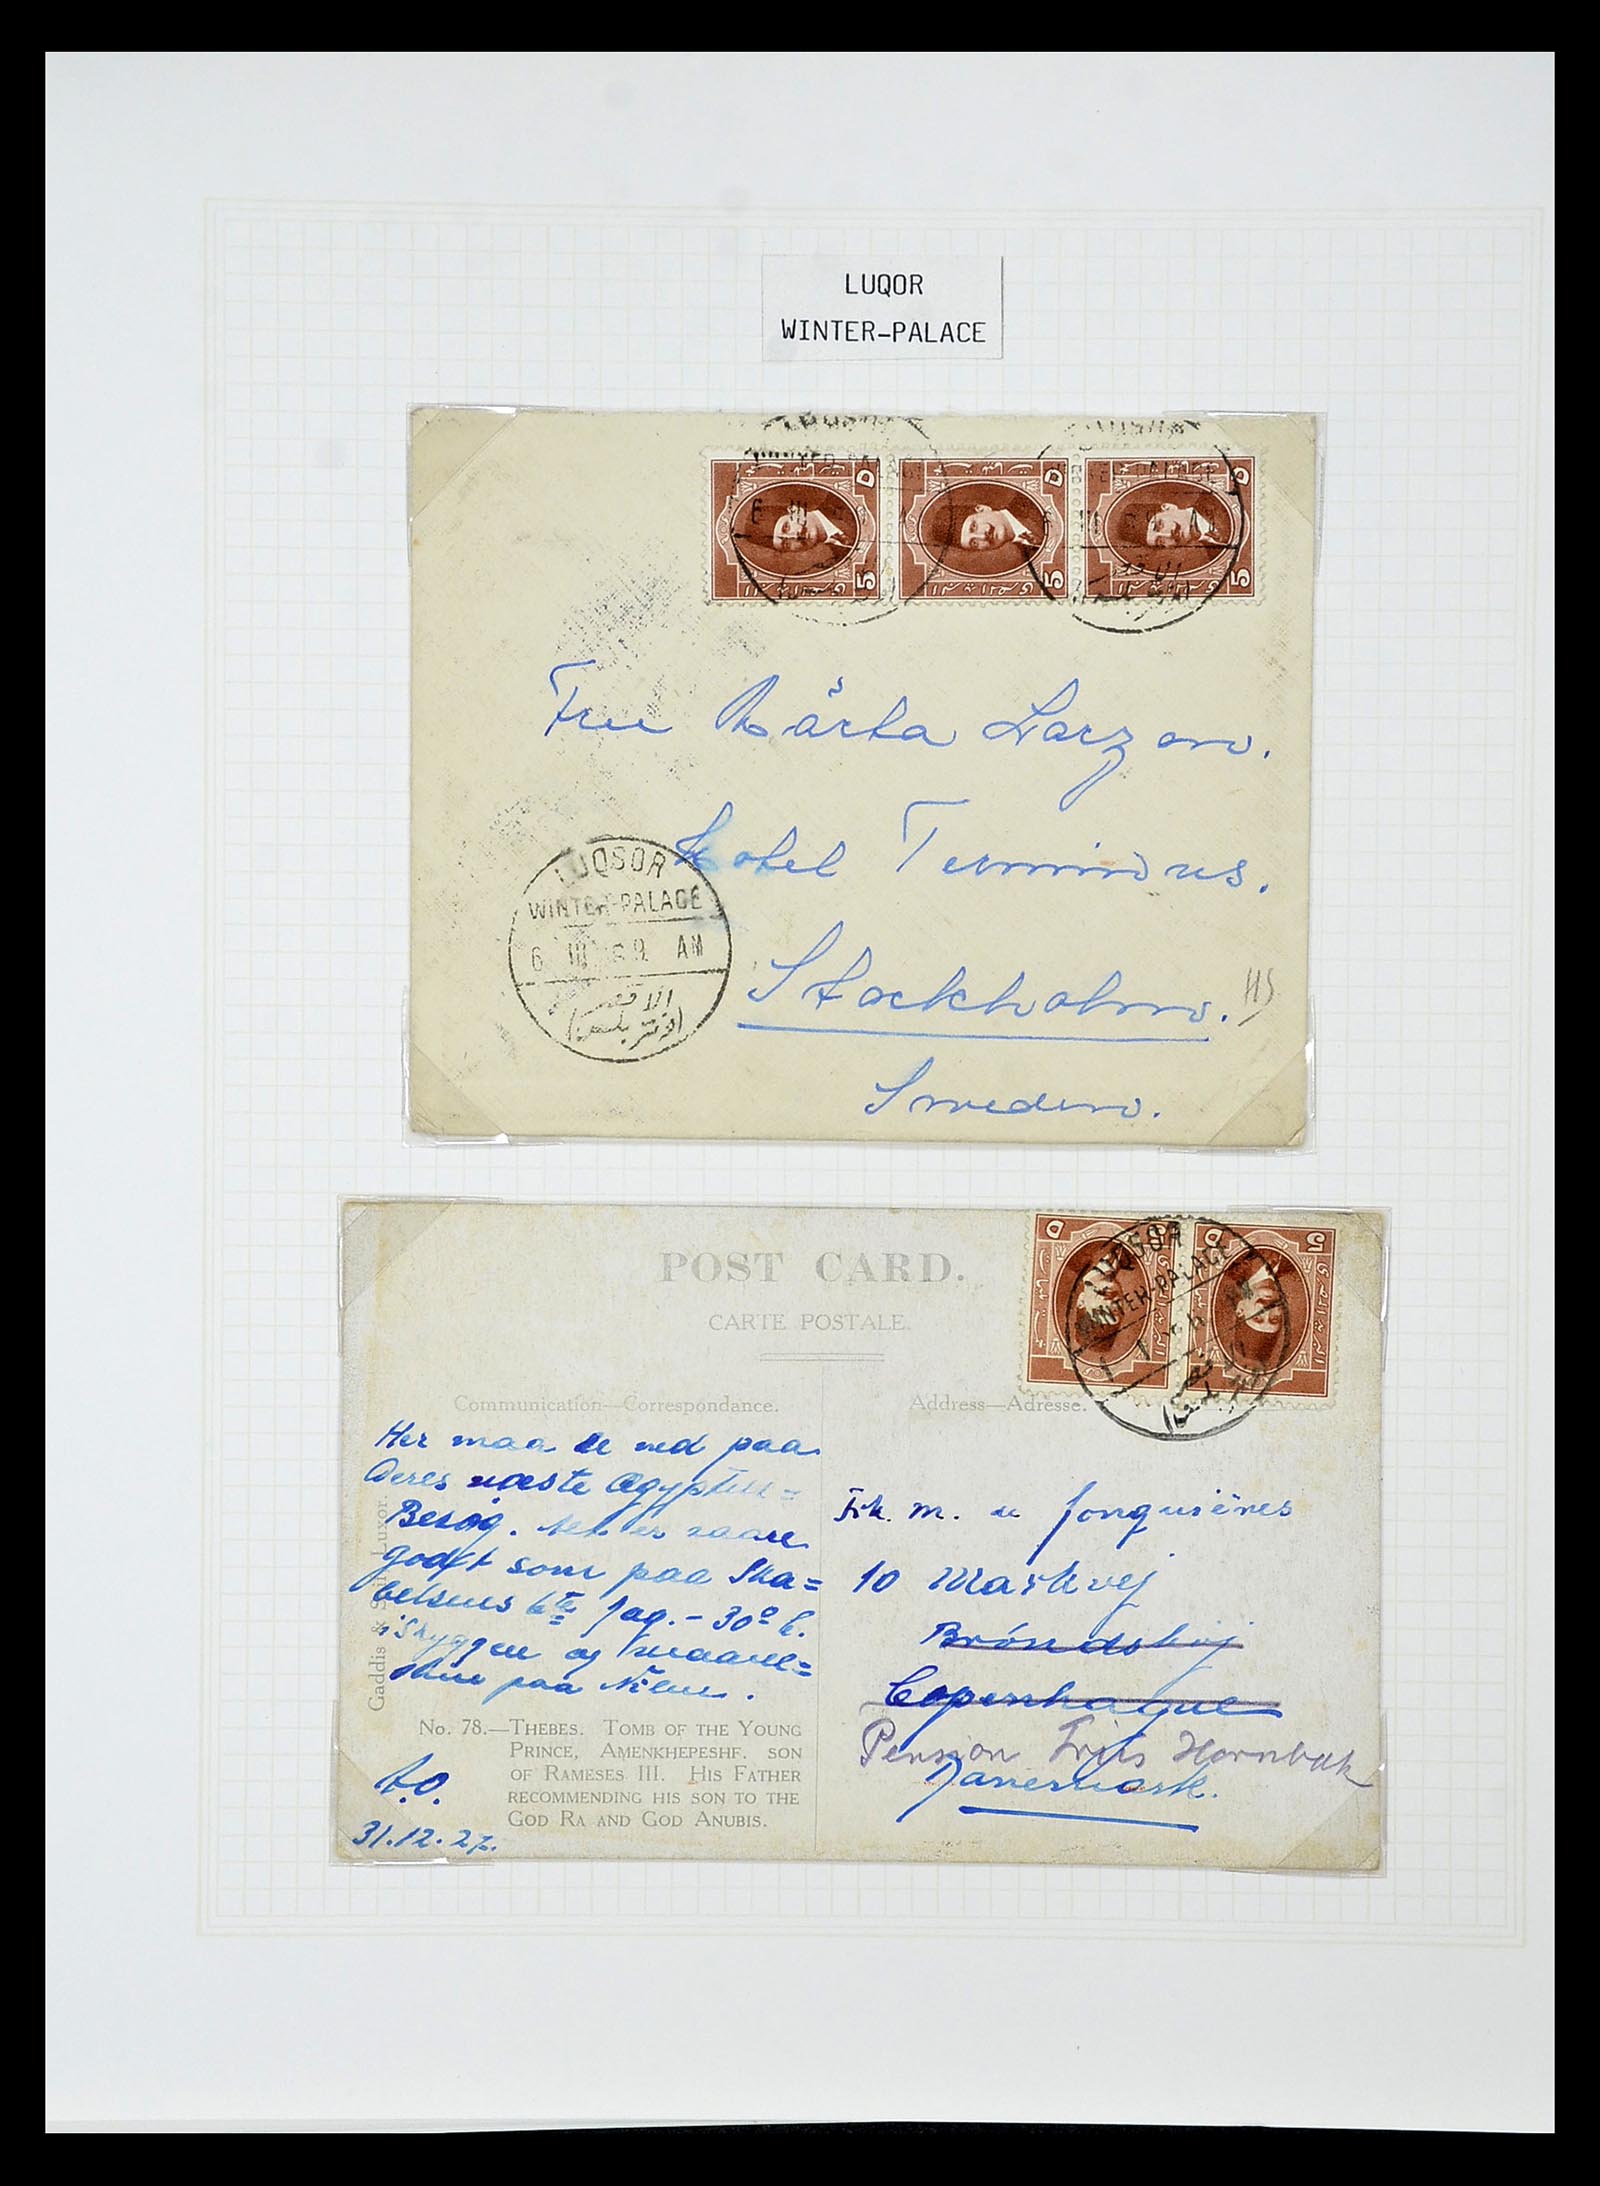 LUQOR
WINTER-PALACE
5 5 5
Fru Märta Larzon.
Hotel Terminus.
Stockholm.
Sweden.
LUQSOR
WINTER-PALACE
6 III 29 AM
الاقصر
(ونتر بلس)
POST CARD.
CARTE POSTALE.
LUQSOR
WINTER-PALACE
Communication—Correspondance.
Address—Adresse.
Her maa De ned paa
Deres næste Ægypten=
Besøg. Det er saare
godt som paa Ska=
belsens 6te Dag. - 30° C.
i Skyggen og maane=
skin paa Nilen.
A.O.
31.12.27.
Gaddis & Seif Luxor.
No. 78.—Thebes. Tomb of the Young
Prince, Amenkhepeshf. son
of Rameses III. His Father
recommending his son to the
God Ra and God Anubis.
Frk. M. de Jonquières
10 Markvej
Brøndshøj
Copenhague
Pension Friis Hornbæk
Danemark.